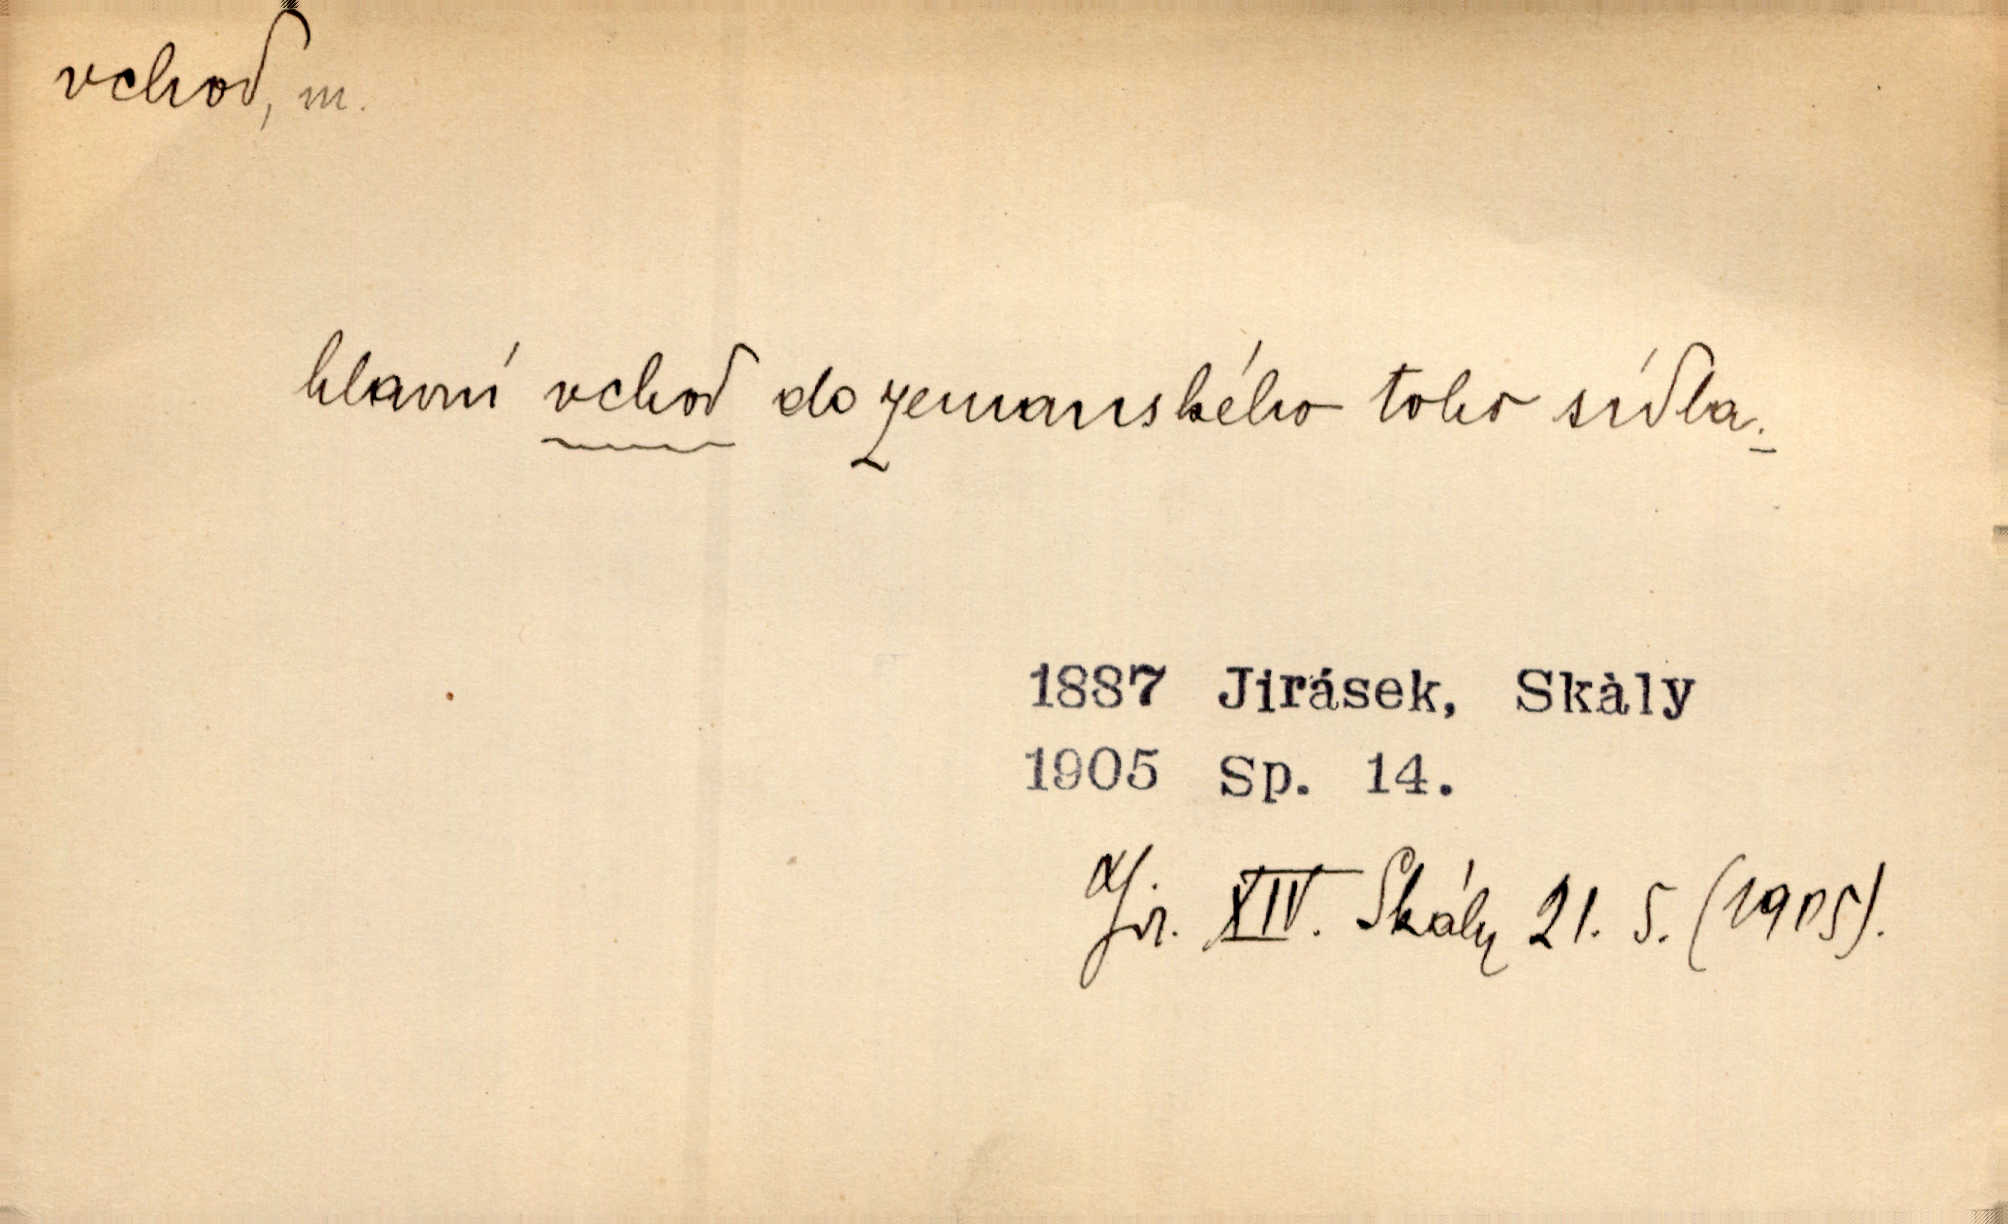 vchod, m.
hlavní vchod do zemanského toho sídla.
1887 Jirásek, Skály
1905 Sp. 14.
Jir. XIV. Skály 21. 5. (1905).